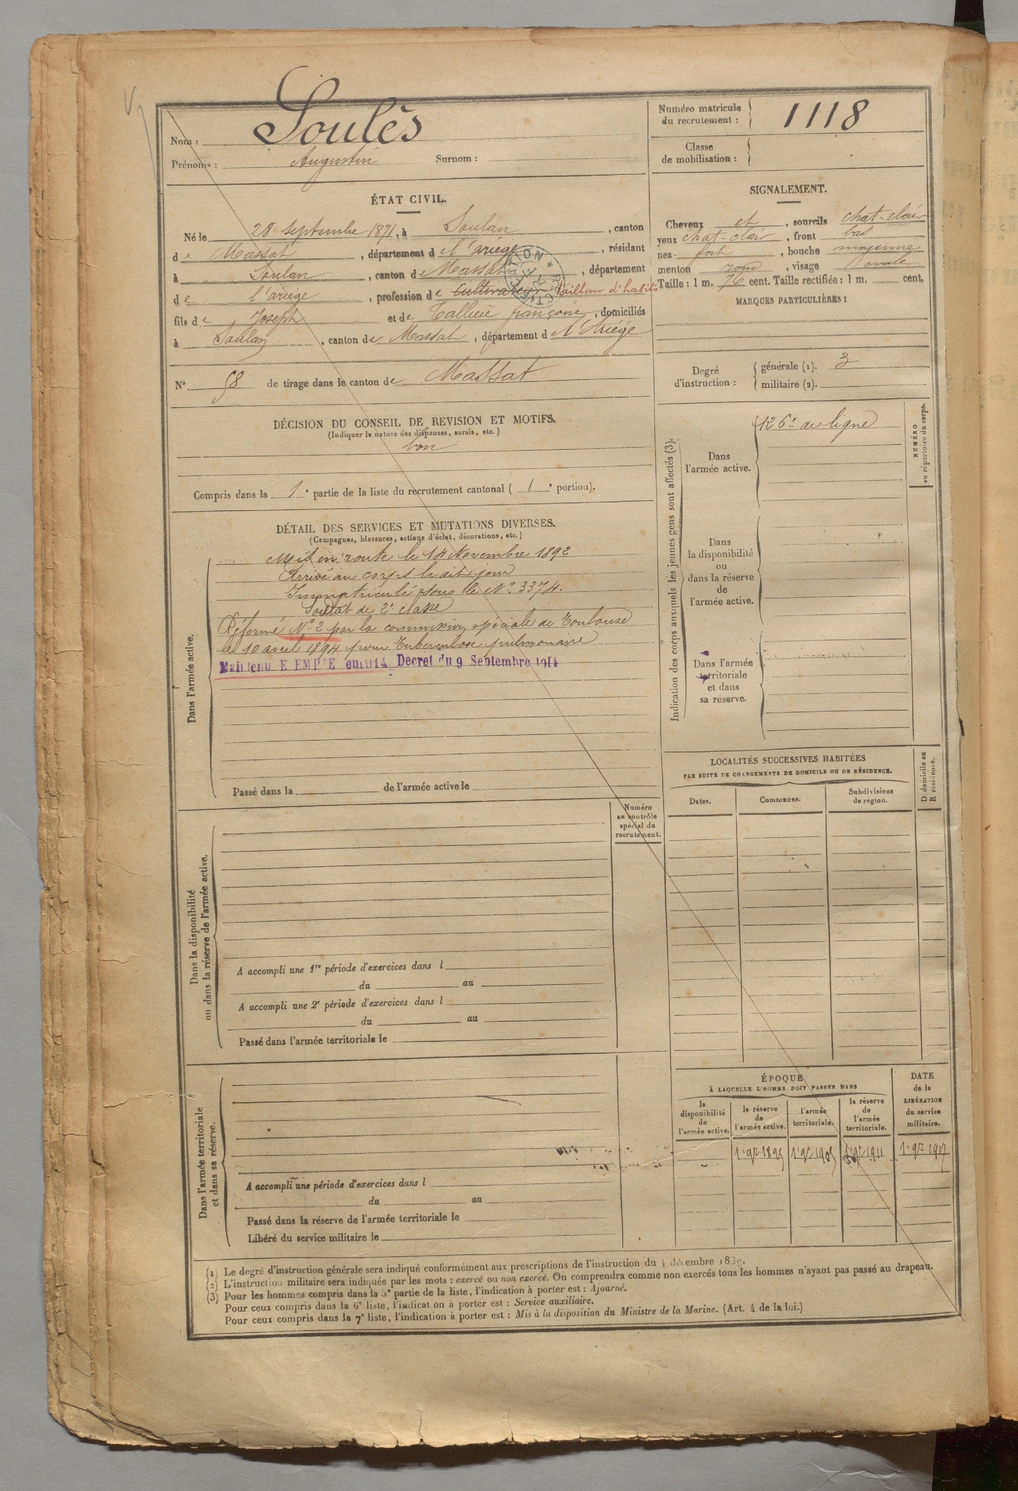 Nom : Soulès
Prénoms : Augustin Surnom :
Numéro matricule du recrutement : 1118
Classe de mobilisation :
ÉTAT CIVIL.
Né le 28 septembre 1871, à Soulan, canton
de Massat, département de l'ariege, résidant
à Soulan, canton de Massat, département
de l'ariege, profession de Cultivateur tailleur d'habits
fils de Joseph et de Tallieu françoise, domiciliés
à Soulan, canton de Massat, département d l'Ariége
N° 58 de tirage dans le canton de Massat
SIGNALEMENT.
Cheveux et, sourcils chat-clair
yeux chat-clair, front bas
nez fort, bouche moyenne
menton rond, visage ovale
Taille : 1 m. 76 cent. Taille rectifiée : 1 m. cent.
MARQUES PARTICULIÈRES :
Degré d'instruction : générale (1). 3
militaire (2).
DÉCISION DU CONSEIL DE REVISION ET MOTIFS.
(Indiquer la nature des dispenses, sursis, etc.)
bon
Compris dans la 1e partie de la liste du recrutement cantonal ( 1e portion).
DÉTAIL DES SERVICES ET MUTATIONS DIVERSES.
(Campagnes, blessures, actions d'éclat, décorations, etc.)
Dans l'armée active.
Mis en route le 14 Novembre 1892
Arrivé au corps le dit jour
Immatriculé sous le N° 3374.
Soldat de 2e classe
Réformé N° 2 par la commission spéciale de Toulouse
le 10 avril 1894 pour Tuberculose pulmonaire
Maintenu RÉFORMÉ en 1914, Décret du 9 Septembre 1914
Passé dans la de l'armée active le
Indication des corps auxquels les jeunes gens sont affectés (3).
NUMÉRO au répertoire du corps.
Dans l'armée active.
126e de ligne
Dans la disponibilité ou dans la réserve de l'armée active.
Dans l'armée territoriale et dans sa réserve.
LOCALITÉS SUCCESSIVES HABITÉES
PAR SUITE DE CHANGEMENTS DE DOMICILE OU DE RÉSIDENCE.
Dates. Communes. Subdivisions de région. D domicile ou R résidence.
Numéro au contrôle spécial du recrutement.
Dans la disponibilité ou dans la réserve de l'armée active.
A accompli une 1re période d'exercices dans l
du au
A accompli une 2e période d'exercices dans l
du au
Passé dans l'armée territoriale le
Dans l'armée territoriale et dans sa réserve.
A accompli une période d'exercices dans l
du au
Passé dans la réserve de l'armée territoriale le
Libéré du service militaire le
ÉPOQUE
À LAQUELLE L'HOMME DOIT PASSER DANS
la disponibilité de l'armée active. la réserve de l'armée active. l'armée territoriale. la réserve de l'armée territoriale.
DATE de la LIBÉRATION du service militaire.
1 9bre 1895 1 9bre 1905 1 9bre 1911 1 9bre 1917
(1) Le degré d'instruction générale sera indiqué conformément aux prescriptions de l'instruction du 4 décembre 1889.
(2) L'instruction militaire sera indiquée par les mots : exercé ou non exercé. On comprendra comme non exercés tous les hommes n'ayant pas passé au drapeau.
(3) Pour les hommes compris dans la 5e partie de la liste, l'indication à porter est : Ajourné.
Pour ceux compris dans la 6e liste, l'indication à porter est : Service auxiliaire.
Pour ceux compris dans la 7e liste, l'indication à porter est : Mis à la disposition du Ministre de la Marine. (Art. 4 de la loi.)